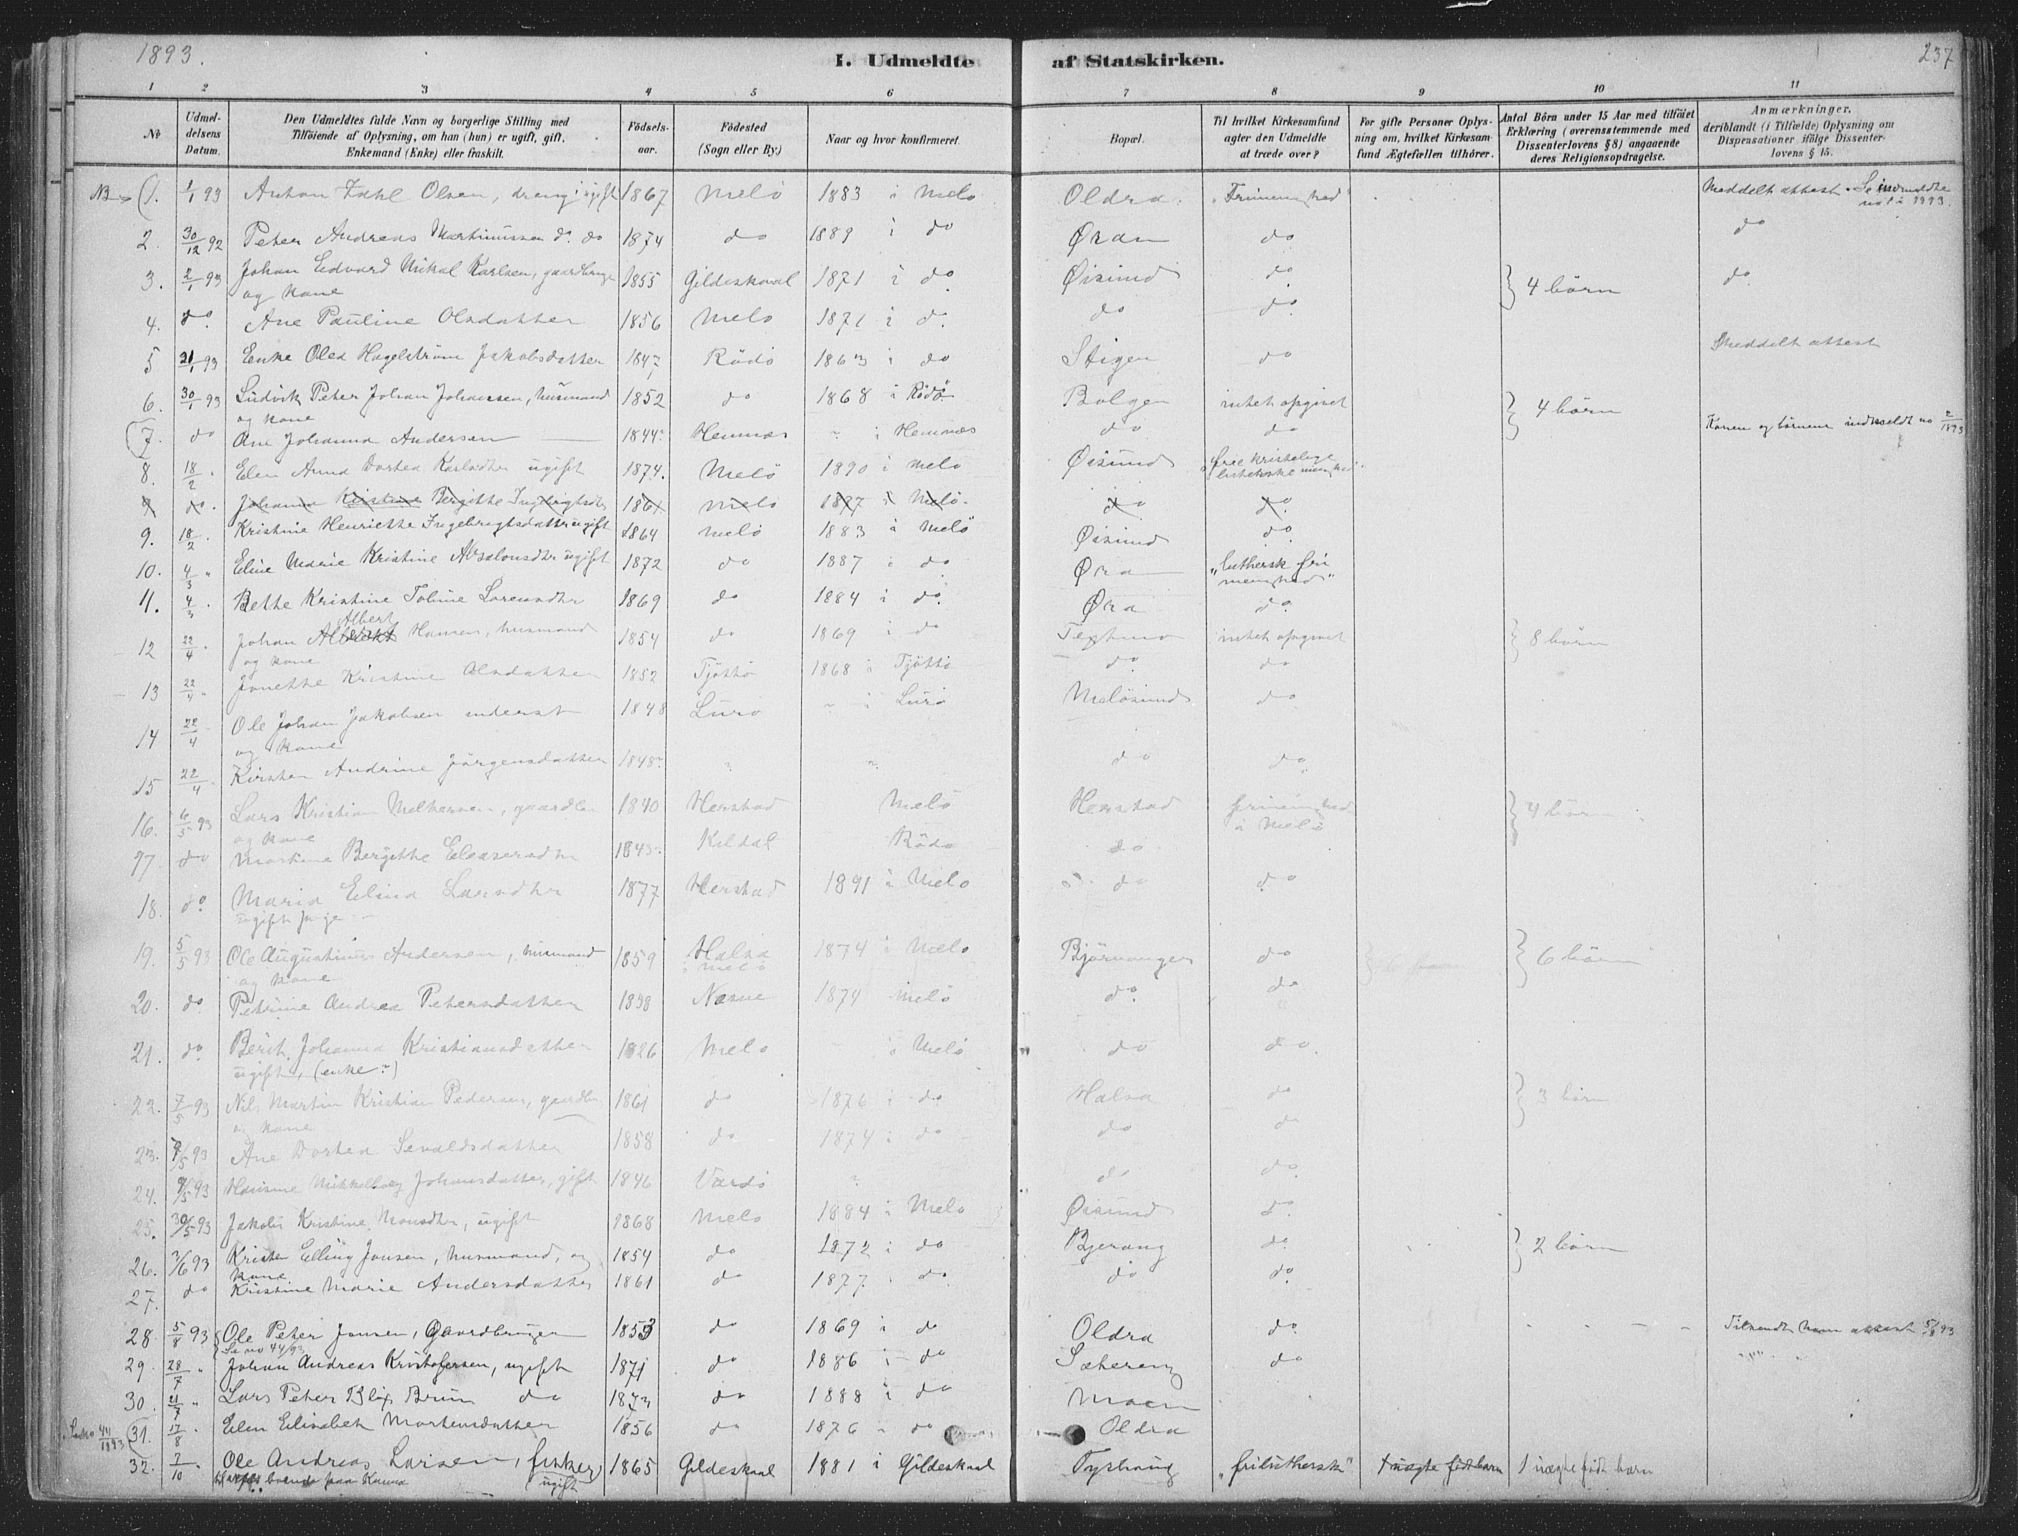 1893.
I. Udmeldte af Statskirken.
237
1 2 3 4 5 6 7 8 9 10 11
No
Udmeldelsens Datum.
Den Udmeldtes fulde Navn og borgerlige Stilling med Tilföiende af Oplysning, om han (hun) er ugift, gift, Enkemand (Enke) eller fraskilt.
Födselsaar.
Födested (Sogn eller By.)
Naar og hvor konfirmeret
Bopæl.
Til hvilket Kirkesamfund agter den Udmeldte at træde over?
For gifte Personer Oplysning om, hvilket Kirkesamfund Ægtefællen tilhörer.
Antal Börn under 15 Aar med tilföiet Erklæring (overensstemmende med Dissenterlovens § 8) angaaende deres Religionsopdragelse.
Anmærkninger, deriblandt (i Tilfælde) Oplysning om Dispensationer ifölge Dissenterlovens § 15.
NB 1. 1/1 93 Anton Zahl Olsen, dreng, ugift 1867 Melö 1883 i Melö Oldra. "Frimenighed" Meddelt attest. Se indmeldte no 1 i 1893.
2. 30/12 92 Peter Andreas Martinussen do. do 1874 do 1889 i do Øran do do
3. 2/1 93 Johan Edvard Mikal Karlsen, gaardbruger 1855 Gildeskaal 1871 i do. Øisund do. } 4 börn do.
og kone
4. do. Ane Pauline Olsdatter 1856 Melö 1871 i do. do do.
5 31/1 93 Enke Olea Hagelström Jakobsdatter 1847 Rödö 1863 i do Stigen do Meddelt attest
6. 30/1 93 Ludvik Peter Johan Johansen, husmand 1852 do 1868 i Rödö Bolgen intet opgivet } 4 börn
og kone
7. do Ane Johanna Andersen 1844 Hemnæs " i Hemnæs do do Konen og börnene indmeldt no 2/1893
8. 18/2 . Elen Anna Dortea Karlsdtr ugift 1874. Melö 1890 i Melö Øisund "frie kristelige lutherske menighed"
9 do. Johanna Kristine Bergitte Ingebrigtsdtr 1861 Melö 1877 i Melö. do do.
9. 18/2 . Kristine Henriette Ingebrigtsdatter ugift 1864 Melö 1883 i Melö Øisund do.
10. 4/3 " Eline Marie Kristine Absalonsdtr ugift 1872 do 1887 i do Øra "luthersk frimenighed"
11. 4/3 . Bette Kristine Toline Lorensdtr 1869 do 1884 i do. Øra do.
Albert
12 22/4 . Johan Albrekt Hansen, husmand 1854 do 1869 i do intet opgivet } 8 börn
og kone
13 22/4 " Jonette Kristine Olsdatter 1852 Tjöttö 1868 i Tjöttö do. do
14 22/4 Ole Johan Jakobsen inderst 1848 Lurö " i Lurö Melösund do
og kone
15 22/4 Kirsten Andrine Jörgensdatter 1848 " " do do.
16. 6/5 93 Lars Kristian Melkersen, gaardbr 1840 Herstad Melö Herstad frimenighed i Melö } 4 börn
og kone
17. do Martine Bergitte Eleasersdtr 1843 Kildal Rödö do
18. do. Maria Elina Larsdtr 1877 Herstad 1891 i Melö do do
ugift pige
19. 5/5 93 Ole Augustinus Andersen, husmand 1859 Halsa i Melö 1874 i Melö do } 6 börn
og kone
20. do. Petrine Andrea Petersdatter Nesne 1874 Melö do. do
21. do. Berit Johanna Kristiansdatter 1826 Melö i Melö do do.
ugift, (enke?)
22. 7/5 93 Nils Martin Kristian Pedersen, gaardbr 1861 do 1876 i do. Halsa do } 3 börn
og kone
23. 7/5 93 Ane Dortea Sevaldsdatter 1858 do 1874 i do do do
24. 93 Johansdatter, gift 1846 Vardö do do.
25. 30/5 93 Jakobe Kristine Monsdtr, ugift 1868 Melö 1884 i Melö Øisund do.
26. 2/6 93 Krister Elling Jonsen, husmand, og 1854 do 1872 i do Bjerang do. } 2 börn
kone
27. do Kristine Marie Andersdatter 1861 do 1877 i do. do do.
28. 5/8 93 Ole Peter Jensen, Gaardbruger 1853 do 1869 i do Oldra do. Tilsendt ham attest 5/8 93
Se no 44/93
29. 28/7 " Johan Andreas Kristofersen, ugift 1871 do 1886 i do do "
30. 21/7 " Lars Peter Blix Brun do 1873 do 1888 i do Moen
44/1893 31. 17/8 . Elen Elisabet Mortensdatter 1856 do 1876 i do Oldra
32. 7/10 Ole Andreas Larsen, fisker, 1865 Gildeskaal 1881 i Gildeskaal "frilutherske" 1 uægte födt barn 1 uægte födt barn
boende paa ugift